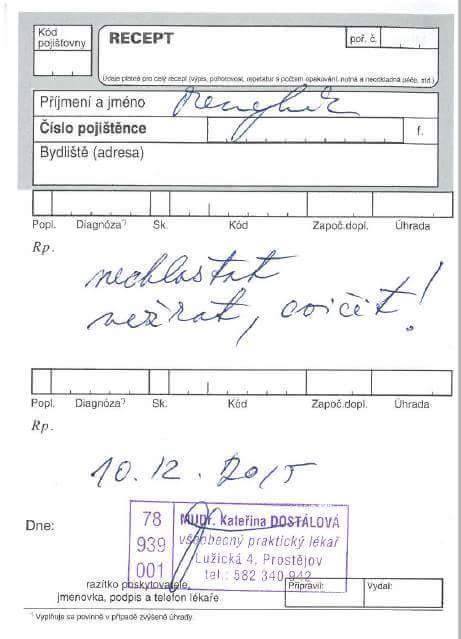 Kód
pojišťovny
RECEPT
poř. č.
Údaje platné pro celý recept (výpis, pohotovost, repetatur s počtem opakování, nutná a neodkladná péče, atd.)
Příjmení a jméno
Číslo pojištěnce
f.
Bydliště (adresa)
Popl. Diagnóza*) Sk. Kód Započ.dopl. Úhrada
Rp.
nechlastat
nežrat, cvičit!
Popl. Diagnóza*) Sk. Kód Započ.dopl. Úhrada
Rp.
10.12.2015
Dne:
78
939
001
MUDr. Kateřina DOSTÁLOVÁ
všeobecný praktický lékař
Lužická 4, Prostějov
tel.: 582 340 942
razítko poskytovatele,
jmenovka, podpis a telefon lékaře
Připravil:
Vydal:
*) Vyplňuje se povinně v případě zvýšené úhrady.